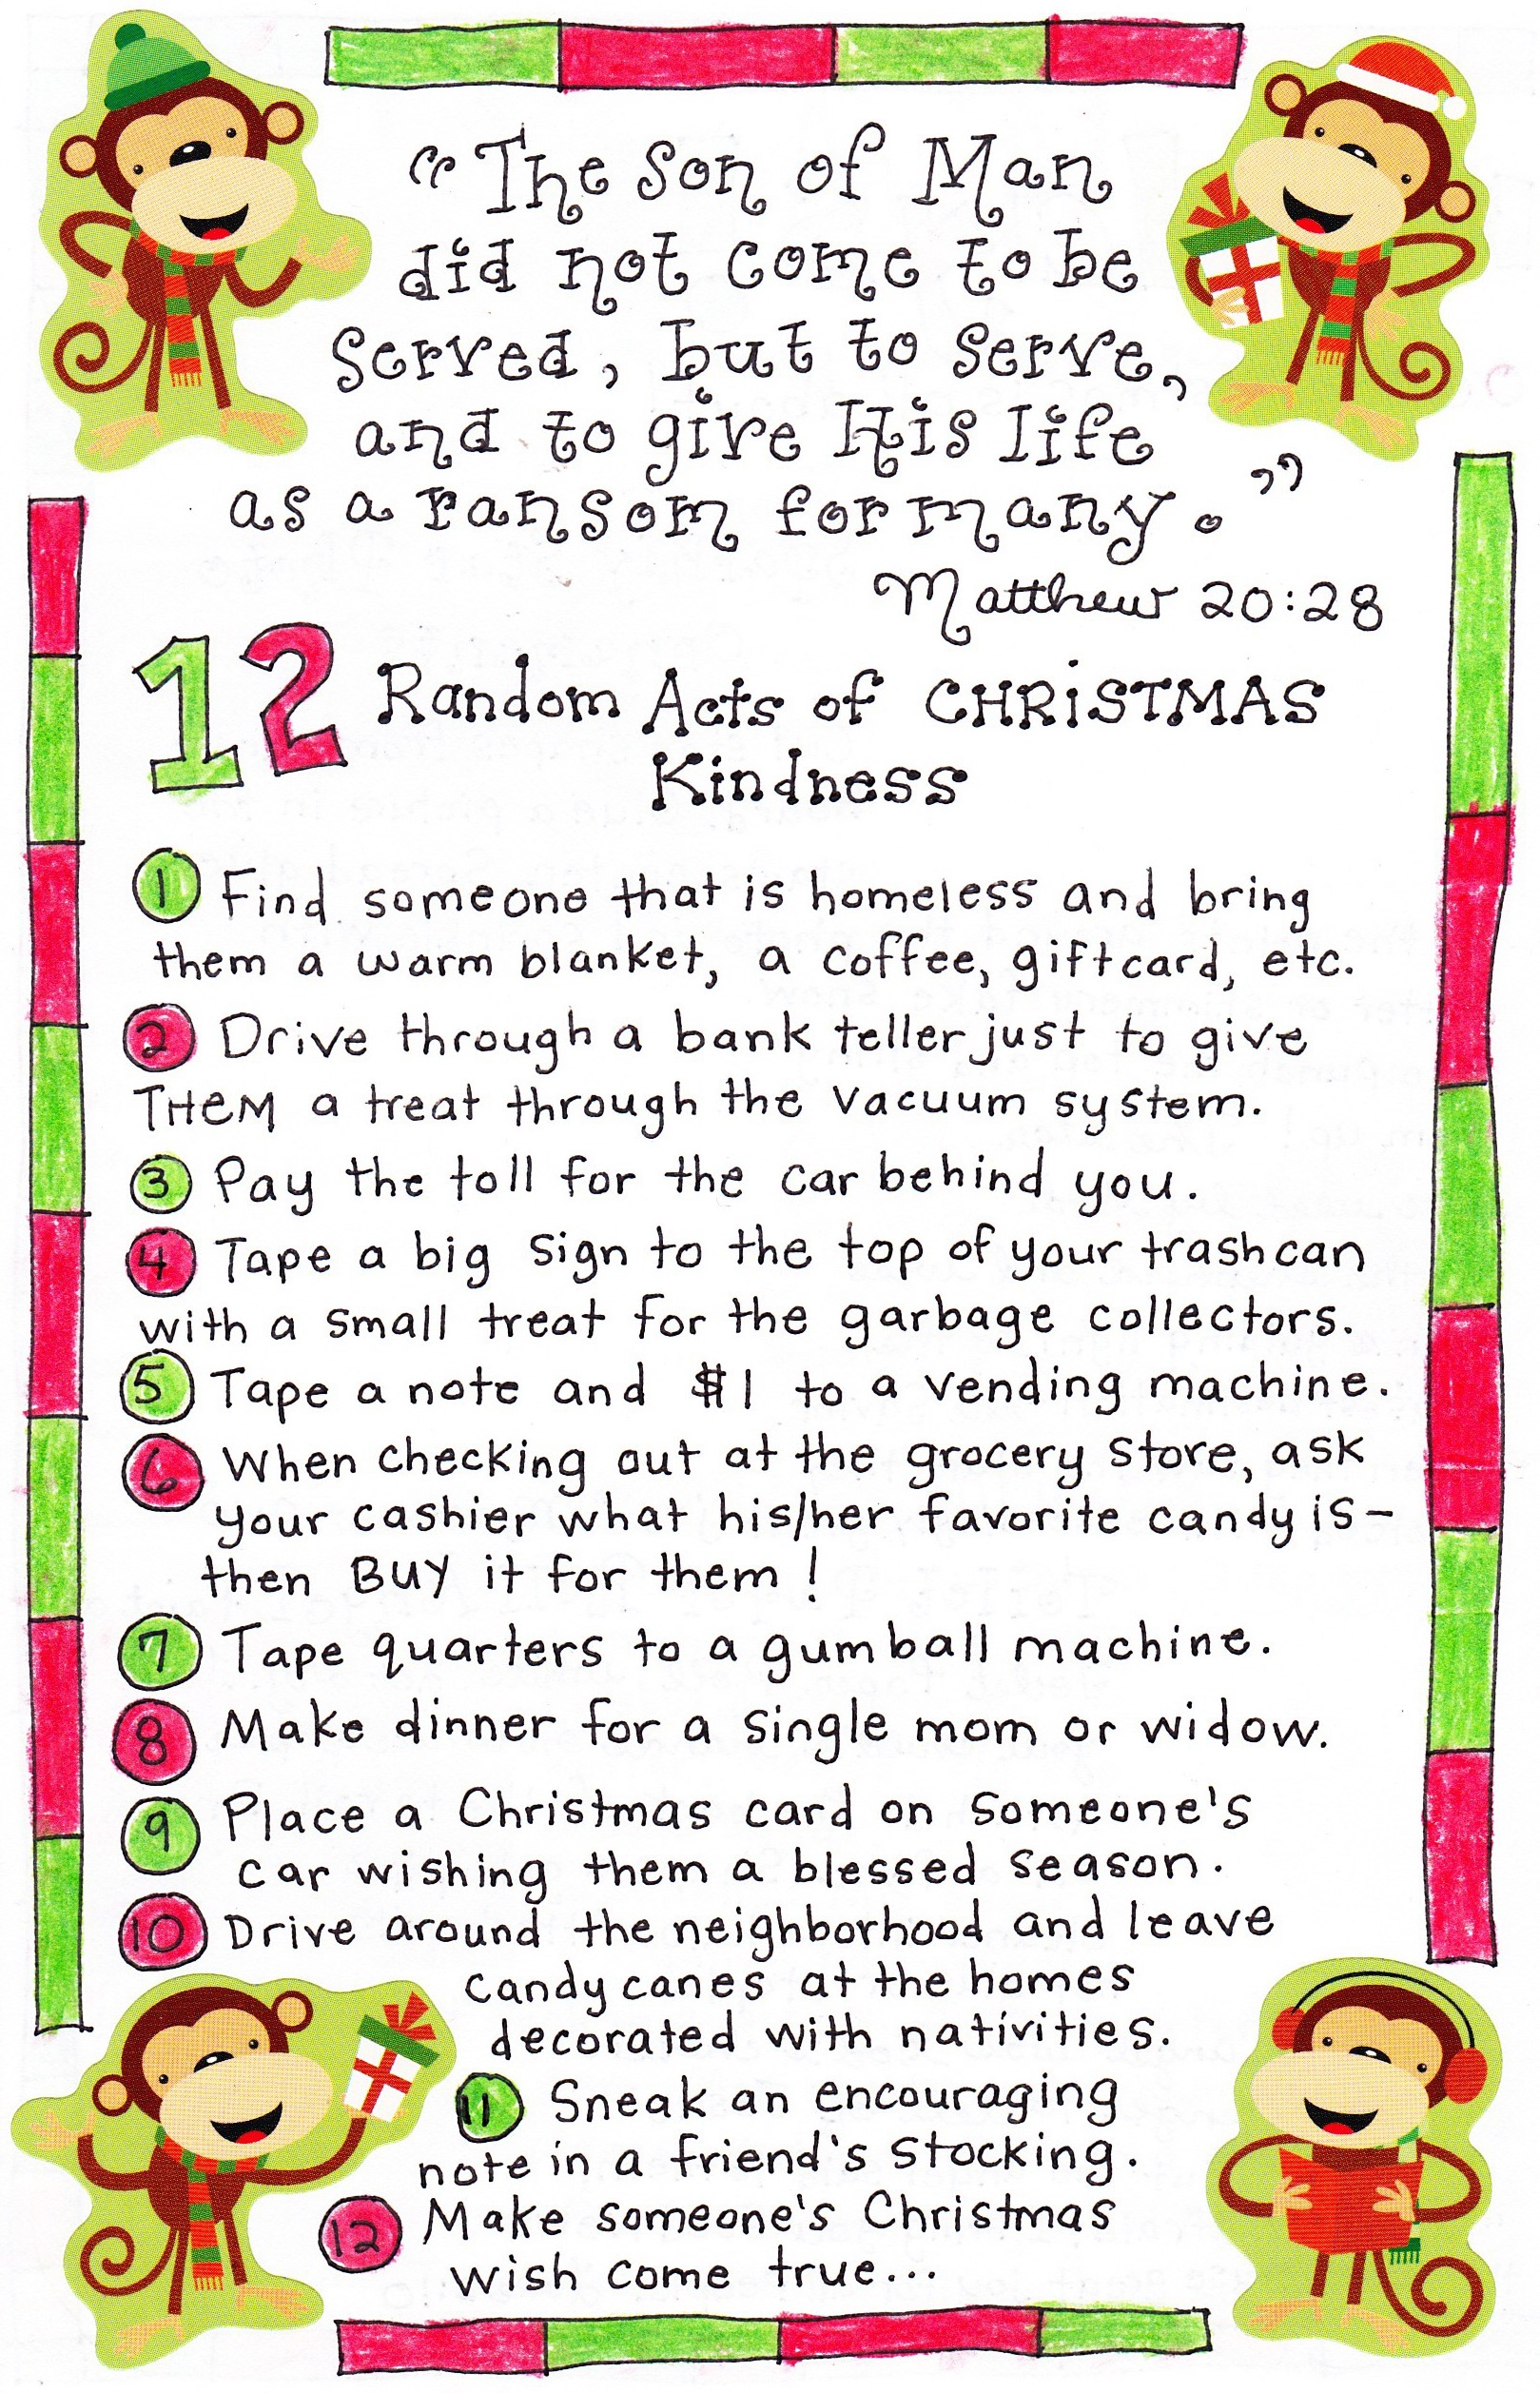 "The Son of Man
did not come to be
served, but to serve,
and to give His life
as a ransom for many."
Matthew 20:28
12 Random Acts of CHRiSTMAS
Kindness
1 Find someone that is homeless and bring
them a warm blanket, a coffee, giftcard, etc.
2 Drive through a bank teller just to give
THEM a treat through the vacuum system.
3 Pay the toll for the car behind you.
4 Tape a big sign to the top of your trashcan
with a small treat for the garbage collectors.
5 Tape a note and $1 to a vending machine.
6 When checking out at the grocery store, ask
your cashier what his/her favorite candy is-
then BUY it for them!
7 Tape quarters to a gumball machine.
8 Make dinner for a single mom or widow.
9 Place a Christmas card on someone's
car wishing them a blessed season.
10 Drive around the neighborhood and leave
candy canes at the homes
decorated with nativities.
11 Sneak an encouraging
note in a friend's stocking.
12 Make someone's Christmas
wish come true...